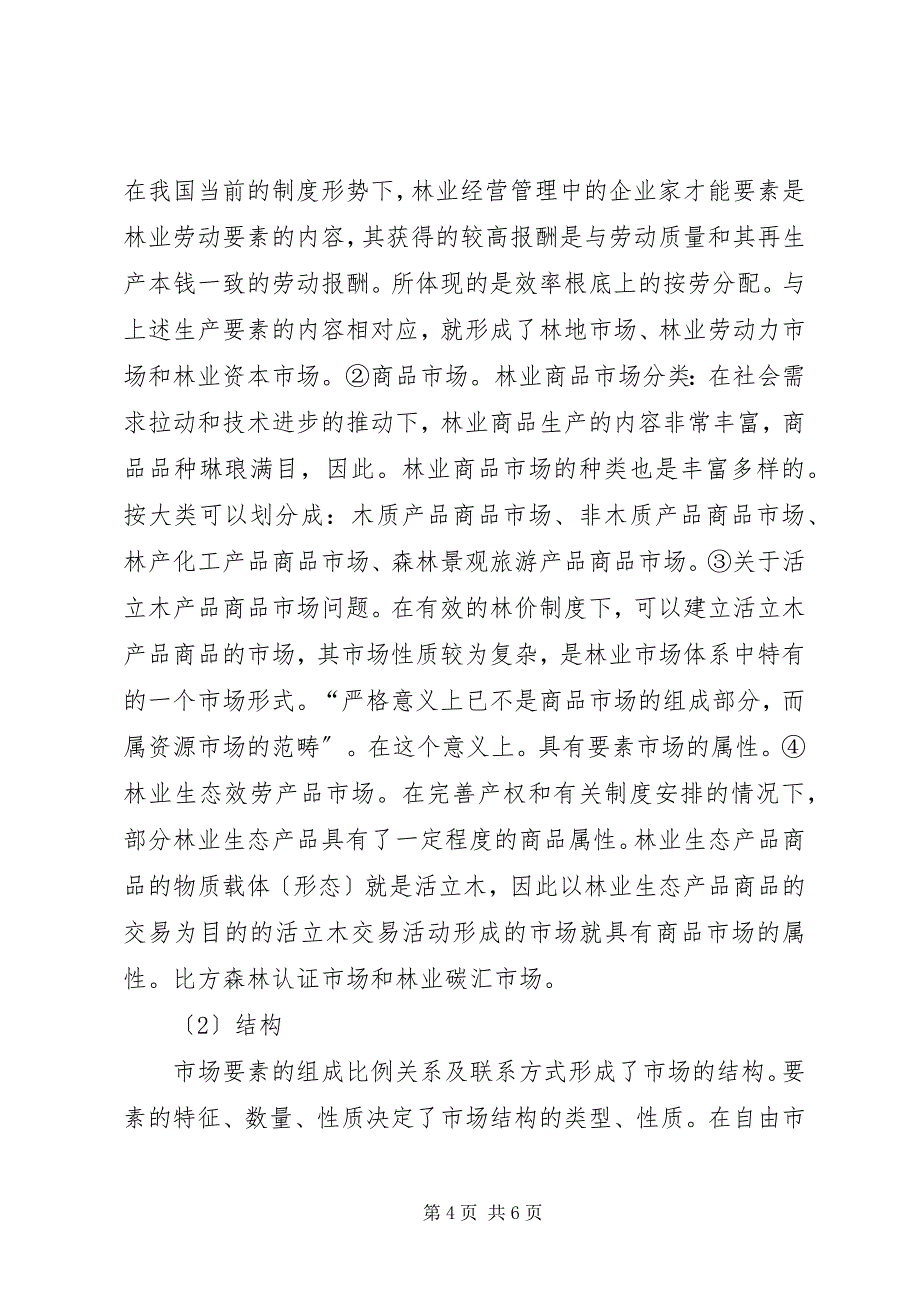 在我国当前的制度形势下，林业经营管理中的企业家才能要素是
林业劳动要素的内容，其获得的较高报酬是与劳动质量和其再生
产本钱一致的劳动报酬。所体现的是效率根底上的按劳分配。与
上述生产要素的内容相对应，就形成了林地市场、林业劳动力市
场和林业资本市场。②商品市场。林业商品市场分类：在社会需
求拉动和技术进步的推动下，林业商品生产的内容非常丰富，商
品品种琳琅满目，因此。林业商品市场的种类也是丰富多样的。
按大类可以划分成：木质产品商品市场、非木质产品商品市场、
林产化工产品商品市场、森林景观旅游产品商品市场。③关于活
立木产品商品市场问题。在有效的林价制度下，可以建立活立木
产品商品的市场，其市场性质较为复杂，是林业市场体系中特有
的一个市场形式。“严格意义上已不是商品市场的组成部分，而
属资源市场的范畴〞。在这个意义上。具有要素市场的属性。④
林业生态效劳产品市场。在完善产权和有关制度安排的情况下，
部分林业生态产品具有了一定程度的商品属性。林业生态产品商
品的物质载体〔形态〕就是活立木，因此以林业生态产品商品的
交易为目的的活立木交易活动形成的市场就具有商品市场的属
性。比方森林认证市场和林业碳汇市场。
〔2〕结构
市场要素的组成比例关系及联系方式形成了市场的结构。要
素的特征、数量、性质决定了市场结构的类型、性质。在自由市
第 4 页 共 6 页